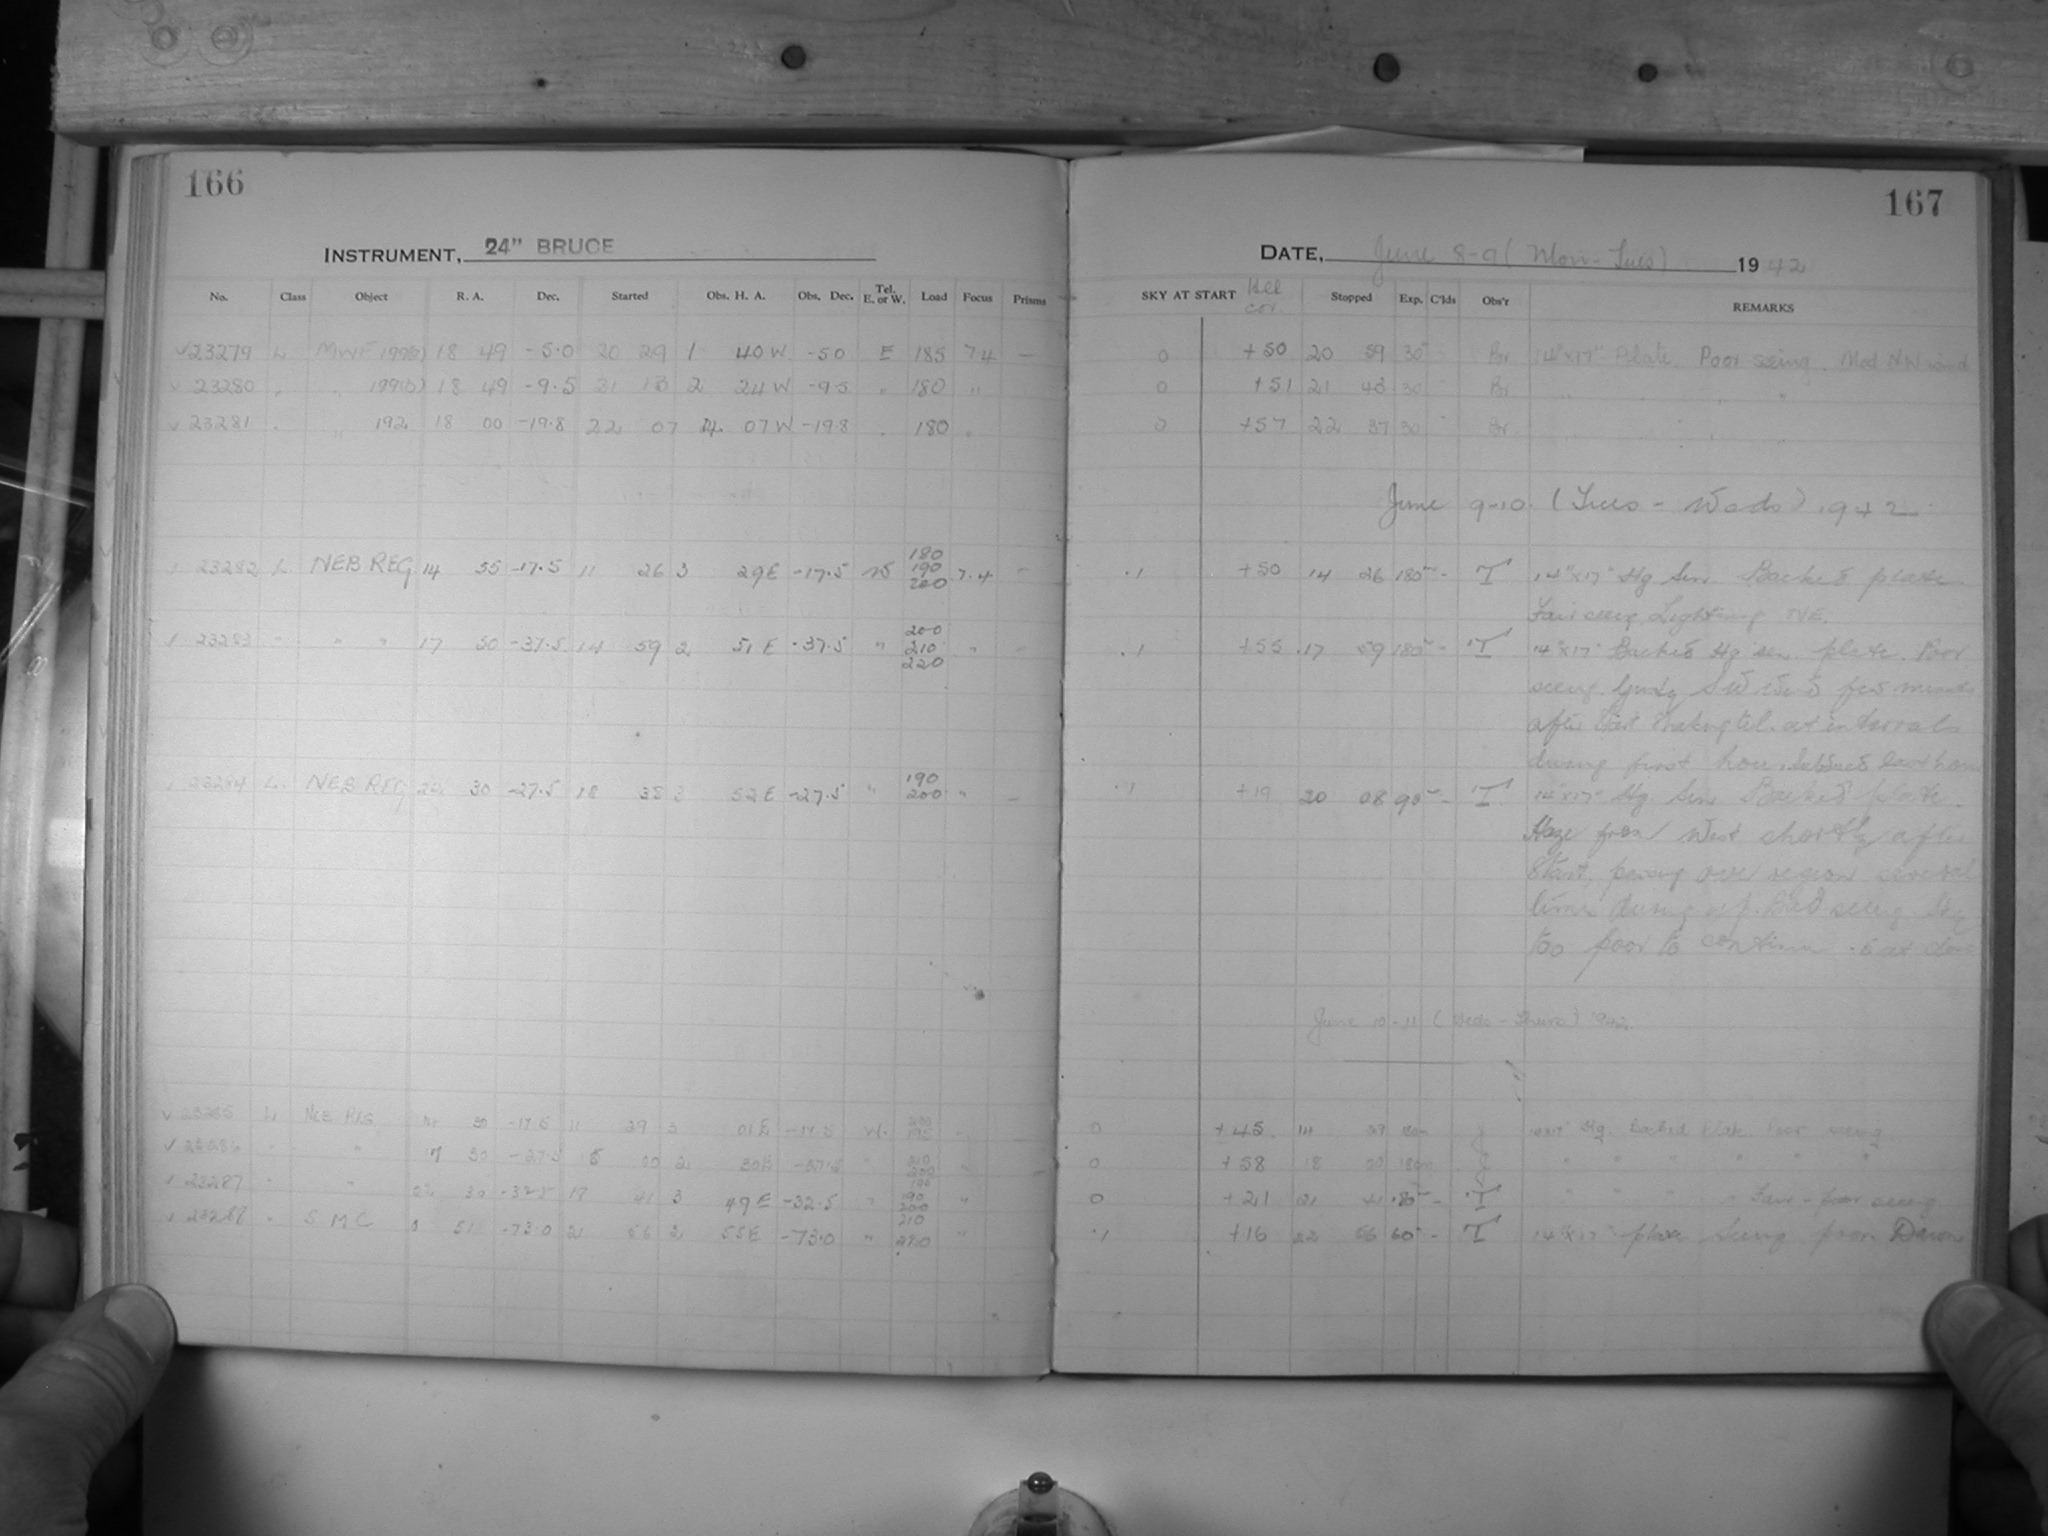 166
INSTRUMENT, 24" BRUCE
No. Class Object R. A. Dec. Started Obs. H. A. Obs. Dec. Tel. E. or W. Load Focus Prisms
√23279 L MWF 199(a) 18 49 -5.0 20 29 1 40 W -5.0 E 185 7.4 —
√ 23280 " " 199(b) 18 49 -9.5 21 13 2 24 W -9.5 " 180 "
√ 23281 " " 192 18 00 -19.8 22 07 4 07 W -19.8 . 180 "
23282 L NEB REG 14 55 -17.5 11 26 3 29 E -17.5 W 180 190 200 7.4 -
23283 " " " 17 50 -37.5 14 59 2 51 E -37.5 " 200 210 220 " -
23284 L. NEB REG 22 30 -27.5 18 38 3 52 E -27.5 " 190 200 " -
√ 23285 L NEB REG 30 -17.5 11 29 3 01 E -17.5 W.
√ 23286 " " 17 30 -27.5 15 00 2 30 E " 210 200
23287 " " 30 -32.5 18 41 3 49 E -32.5 " 190 200 "
23288 " S M C 0 51 -73.0 21 56 2 55 E -73.0 " 210 220 "
167
DATE, June 8-9 ( Mon - Tues ) 1942
SKY AT START Stopped Exp. C'lds Obs'r REMARKS
0 +50 20 59 30 - Br 14"x17" Plate. Poor seeing. Mod NW wind
0 +51 21 43 30 - Br " " "
0 +57 22 37 30 - Br " " "
June 9-10. ( Tues - Weds ) 1942
.1 +50 14 26 180 - T 14"x17" Hg Sen. Backed plate
Fair seeing Lightning NE.
.1 +55 17 59 180 - T 14"x17" Backed Hg sen. plate. Poor
seeing. Gusty SW wind few minutes
after start shaking tel. at intervals
during first hour.
.1 +19 20 08 90 - T 14"x17" Hg. Sen. Backed plate.
Haze from West shortly after
start, passing over region several
times during exp. Bad seeing. Sky
too poor to continue
June 10-11 ( Weds - Thurs ) 1942.
0 +45 14 29 180m J 14x17" Hg. Backed Plate. Poor seeing
0 +58 18 00 180m J " " " " " "
0 +21 21 41 180 - T " " " " Fair-poor seeing
.1 +16 22 56 60 - T 14"x17" plate Seeing poor. Dawn